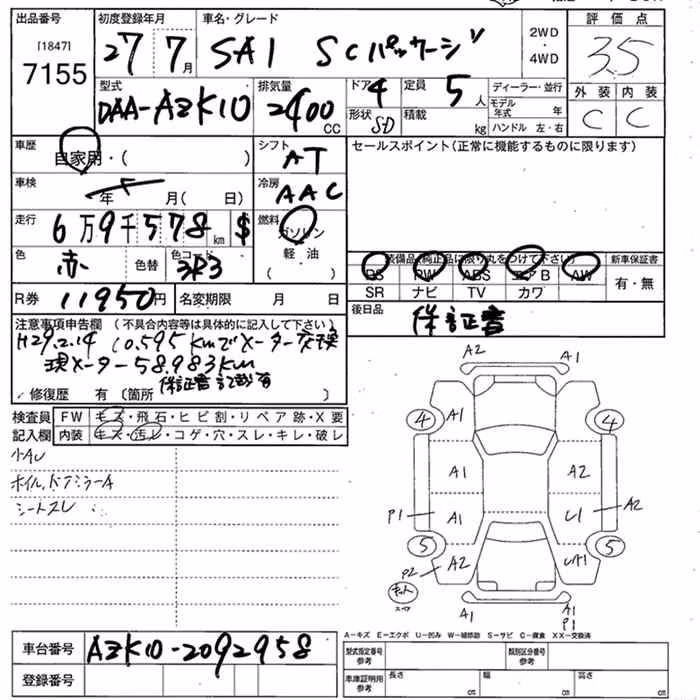 出品番号 初度登録年月 車名・グレード 2WD・4WD 評価点
[1847]
7155 27 7月 SAI SCパッケージ 3.5
外装 内装
C C
型式 排気量 ドア 定員 ディーラー・並行
DAA-AZK10 2400CC 4 5人 モデル年式 年
形状 SD 積載 kg ハンドル 左・右
車歴 自家用・( ) シフト AT
セールスポイント(正常に機能するものに限ります)
車検 年 月( 日) 冷房 AAC
走行 6万9千578km $ 燃料 ガソリン
軽油
( )
色 赤 色替 色コード 3R3
装備品(純正品に限り丸をつけて下さい) 新車保証書
PS PW ABS エアB AW 有・無
SR ナビ TV カワ
R券 11950円 名変期限 月 日
後日品 保証書
注意事項申告欄 (不具合内容等は具体的に記入して下さい)
H29.2.14 10.595Kmでメーター交換
現メーター58.983Km
保証書記載有
修復歴 有 〔箇所 〕
検査員 FW キズ・飛石・ヒビ割・リペア跡・X要
記入欄 内装 キズ・汚レ・コゲ・穴・スレ・キレ・破レ
小AU
ホイル、ドアミラーA
シートスレ
A2 A1
4 A1 4
A1 A2
P1 A1 U1 A2
5 A2 UA1 5
P2
スペア
A1 A1
P1
A-キズ E-エクボ U-凹み W-補修跡 S-サビ C-腐食 XX-交換済
車台番号 AZK10-2092958
登録番号
型式指定番号 参考 類別区分番号 参考
車庫証明用 参考 長さ cm 幅 cm 高さ cm